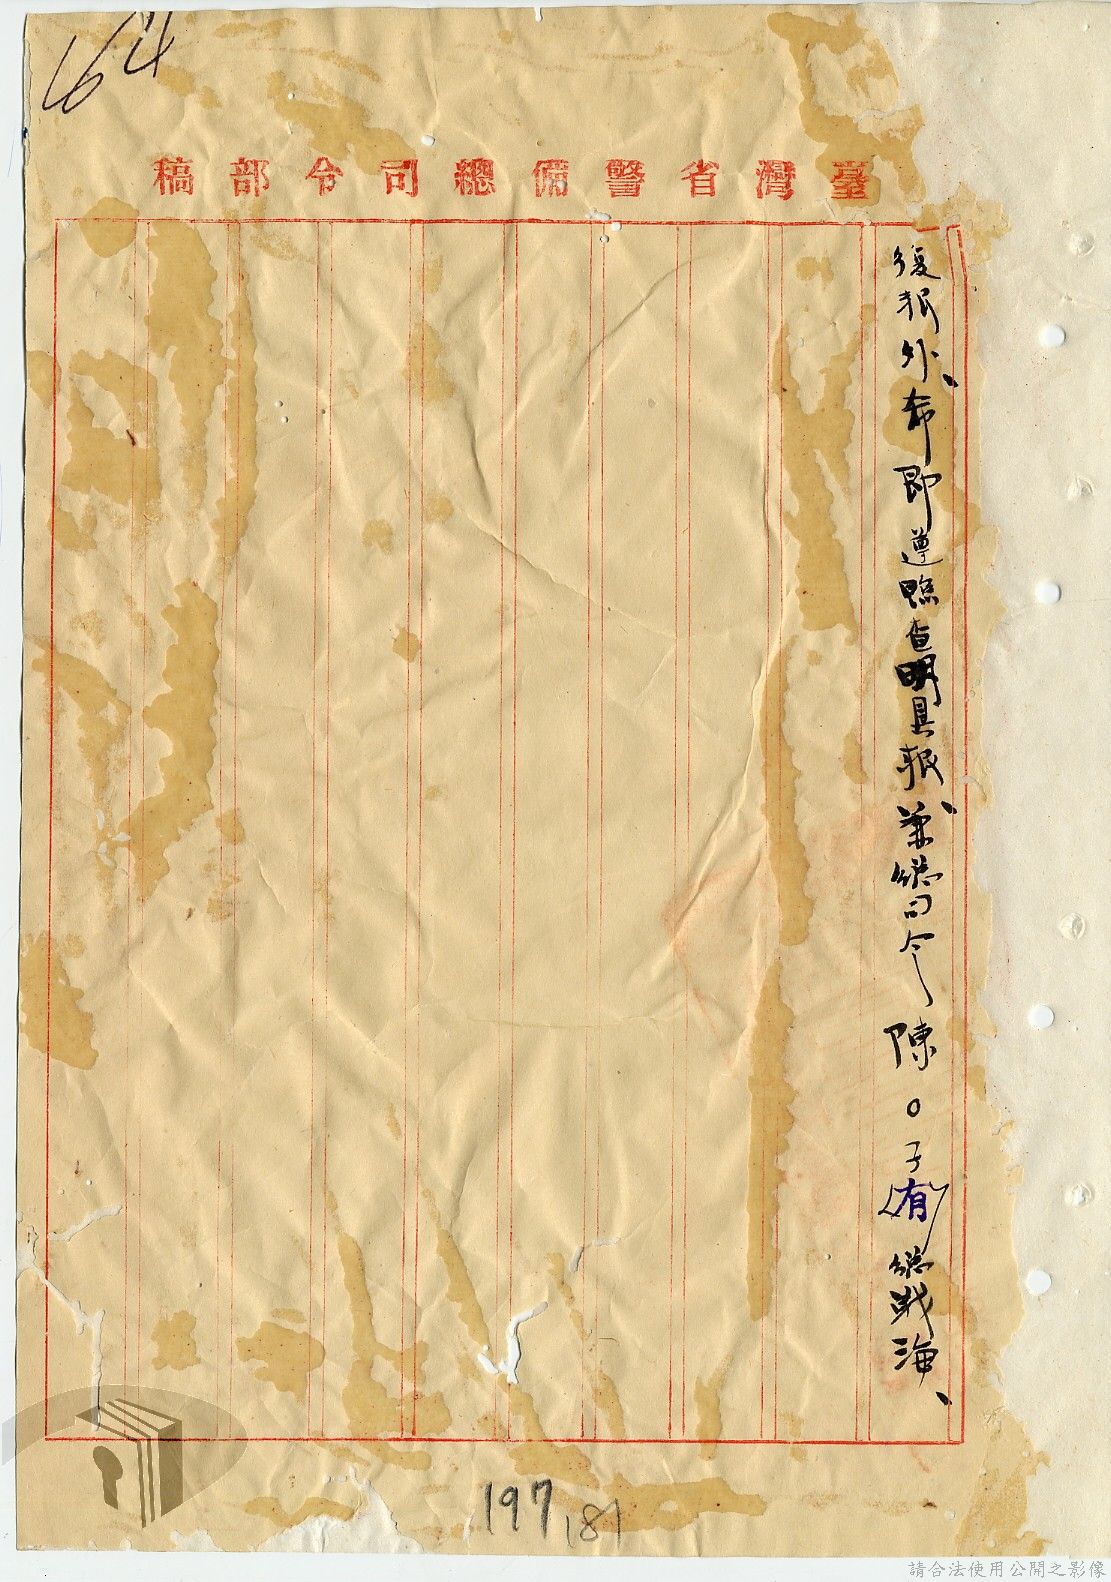 64
臺灣省警備總司令部稿
復報外、希即遵照查明具報、兼總司令陳○子(有)總戰海、
197
181
請合法使用公開之影像